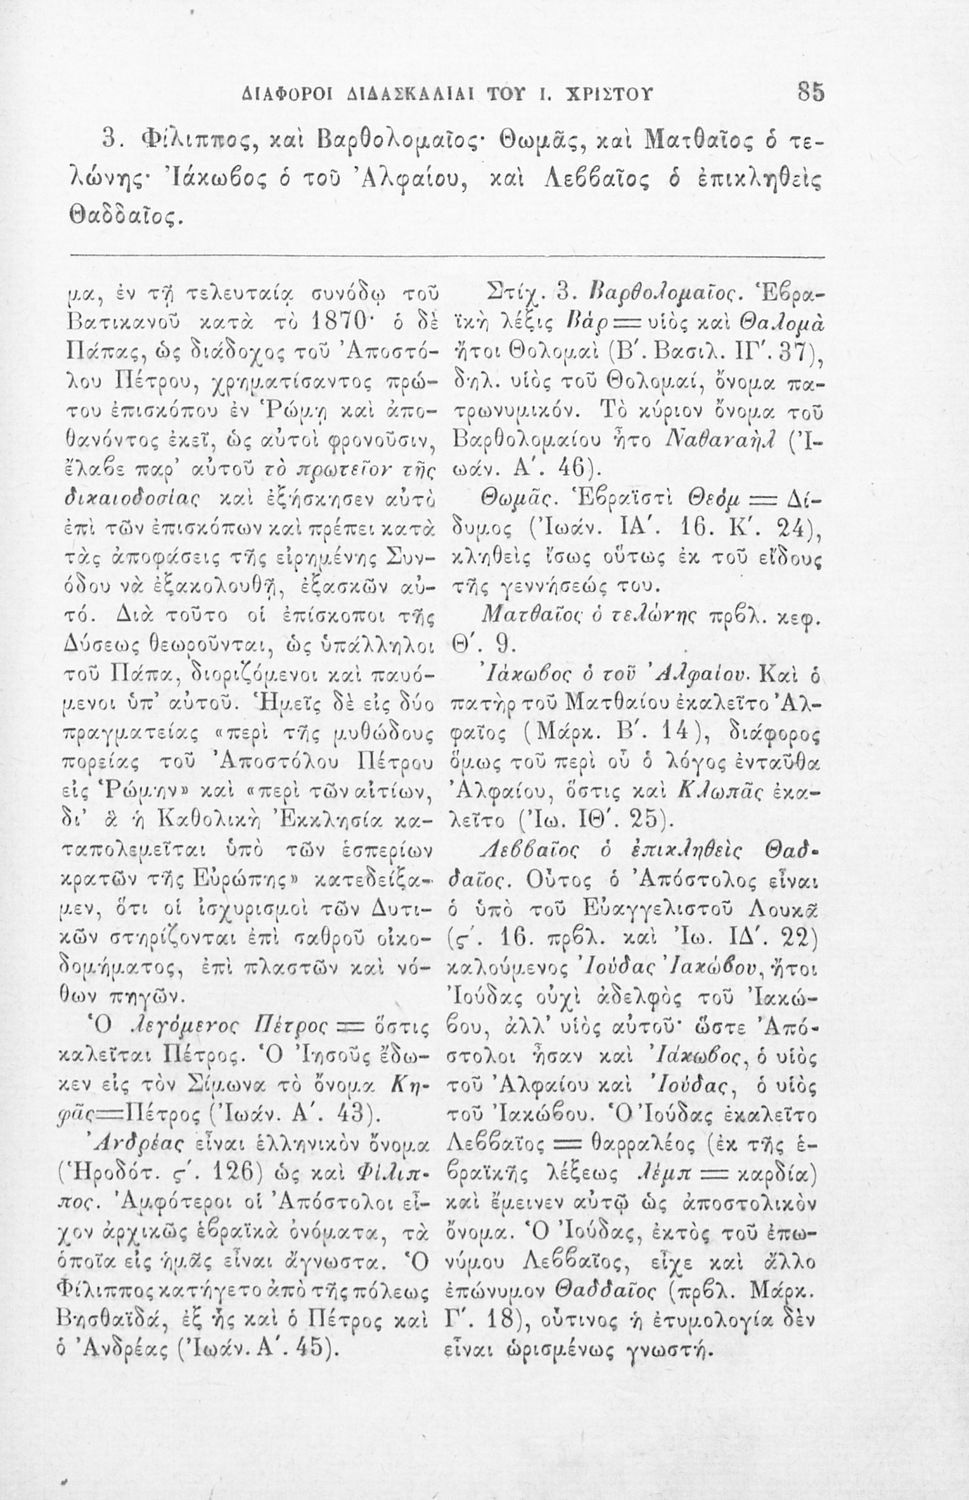 ΔΙΑΦΟΡΟΙ ΔΙΔΑΣΚΑΛΙΑΙ ΤΟΥ Ι. ΧΡΙΣΤΟΥ 85
3. Φίλιππος, καὶ Βαρθολομαῖος· Θωμᾶς, καὶ Ματθαῖος ὁ τε-
λώνης· Ἰάκωβος ὁ τοῦ Ἀλφαίου, καὶ Λεββαῖος ὁ ἐπικληθεὶς
Θαδδαῖος.
μα, ἐν τῇ τελευταίᾳ συνόδῳ τοῦ
Βατικανοῦ κατὰ τὸ 1870· ὁ δὲ
Πάπας, ὡς διάδοχος τοῦ Ἀποστό-
λου Πέτρου, χρηματίσαντος πρώ-
του ἐπισκόπου ἐν Ῥώμῃ καὶ ἀπο-
θανόντος ἐκεῖ, ὡς αὐτοὶ φρονοῦσιν,
ἔλαβε παρ' αὐτοῦ τὸ πρωτεῖον τῆς
δικαιοδοσίας καὶ ἐξήσκησεν αὐτὸ
ἐπὶ τῶν ἐπισκόπων καὶ πρέπει κατὰ
τὰς ἀποφάσεις τῆς εἰρημένης Συν-
όδου νὰ ἐξακολουθῇ, ἐξασκῶν αὐ-
τό. Διὰ τοῦτο οἱ ἐπίσκοποι τῆς
Δύσεως θεωροῦνται, ὡς ὑπάλληλοι
τοῦ Πάπα, διοριζόμενοι καὶ παυό-
μενοι ὑπ' αὐτοῦ. Ἡμεῖς δὲ εἰς δύο
πραγματείας «περὶ τῆς μυθώδους
πορείας τοῦ Ἀποστόλου Πέτρου
εἰς Ῥώμην» καὶ «περὶ τῶν αἰτίων,
δι' ἃ ἡ Καθολικὴ Ἐκκλησία κα-
ταπολεμεῖται ὑπὸ τῶν ἑσπερίων
κρατῶν τῆς Εὐρώπης» κατεδείξα-
μεν, ὅτι οἱ ἰσχυρισμοὶ τῶν Δυτι-
κῶν στηρίζονται ἐπὶ σαθροῦ οἰκο-
δομήματος, ἐπὶ πλαστῶν καὶ νό-
θων πηγῶν.
Ὁ λεγόμενος Πέτρος = ὅστις
καλεῖται Πέτρος. Ὁ Ἰησοῦς ἔδω-
κεν εἰς τὸν Σίμωνα τὸ ὄνομα Κη-
φᾶς=Πέτρος (Ἰωάν. Α΄. 43).
Ἀνδρέας εἶναι ἑλληνικὸν ὄνομα
(Ἡροδότ. ς΄. 126) ὡς καὶ Φίλιπ-
πος. Ἀμφότεροι οἱ Ἀπόστολοι εἶ-
χον ἀρχικῶς ἑβραϊκὰ ὀνόματα, τὰ
ὁποῖα εἰς ἡμᾶς εἶναι ἄγνωστα. Ὁ
Φίλιππος κατήγετο ἀπὸ τῆς πόλεως
Βησθαϊδά, ἐξ ἧς καὶ ὁ Πέτρος καὶ
ὁ Ἀνδρέας (Ἰωάν. Α΄. 45).
Στίχ. 3. Βαρθολομαῖος. Ἑβρα-
ϊκὴ λέξις Βὰρ=υἱὸς καὶ Θαλομὰ
ἤτοι Θολομαὶ (Β΄. Βασιλ. ΙΓ΄. 37),
δηλ. υἱὸς τοῦ Θολομαί, ὄνομα πα-
τρωνυμικόν. Τὸ κύριον ὄνομα τοῦ
Βαρθολομαίου ἦτο Ναθαναὴλ (Ἰ-
ωάν. Α΄. 46).
Θωμᾶς. Ἑβραϊστὶ Θεόμ = Δί-
δυμος (Ἰωάν. ΙΑ΄. 16. Κ΄. 24),
κληθεὶς ἴσως οὕτως ἐκ τοῦ εἴδους
τῆς γεννήσεώς του.
Ματθαῖος ὁ τελώνης πρβλ. κεφ.
Θ΄. 9.
Ἰάκωβος ὁ τοῦ Ἀλφαίου. Καὶ ὁ
πατὴρ τοῦ Ματθαίου ἐκαλεῖτο Ἀλ-
φαῖος (Μάρκ. Β΄. 14), διάφορος
ὅμως τοῦ περὶ οὗ ὁ λόγος ἐνταῦθα
Ἀλφαίου, ὅστις καὶ Κλωπᾶς ἐκα-
λεῖτο (Ἰω. ΙΘ΄. 25).
Λεββαῖος ὁ ἐπικληθεὶς Θαδ-
δαῖος. Οὗτος ὁ Ἀπόστολος εἶναι
ὁ ὑπὸ τοῦ Εὐαγγελιστοῦ Λουκᾶ
(ς΄. 16. πρβλ. καὶ Ἰω. ΙΔ΄. 22)
καλούμενος Ἰούδας Ἰακώβου, ἤτοι
Ἰούδας οὐχὶ ἀδελφὸς τοῦ Ἰακώ-
βου, ἀλλ' υἱὸς αὐτοῦ· ὥστε Ἀπό-
στολοι ἦσαν καὶ Ἰάκωβος, ὁ υἱὸς
τοῦ Ἀλφαίου καὶ Ἰούδας, ὁ υἱὸς
τοῦ Ἰακώβου. Ὁ Ἰούδας ἐκαλεῖτο
Λεββαῖος = θαρραλέος (ἐκ τῆς ἑ-
βραϊκῆς λέξεως λέμπ = καρδία)
καὶ ἔμεινεν αὐτῷ ὡς ἀποστολικὸν
ὄνομα. Ὁ Ἰούδας, ἐκτὸς τοῦ ἐπω-
νύμου Λεββαῖος, εἶχε καὶ ἄλλο
ἐπώνυμον Θαδδαῖος (πρβλ. Μάρκ.
Γ΄. 18), οὗτινος ἡ ἐτυμολογία δὲν
εἶναι ὡρισμένως γνωστή.